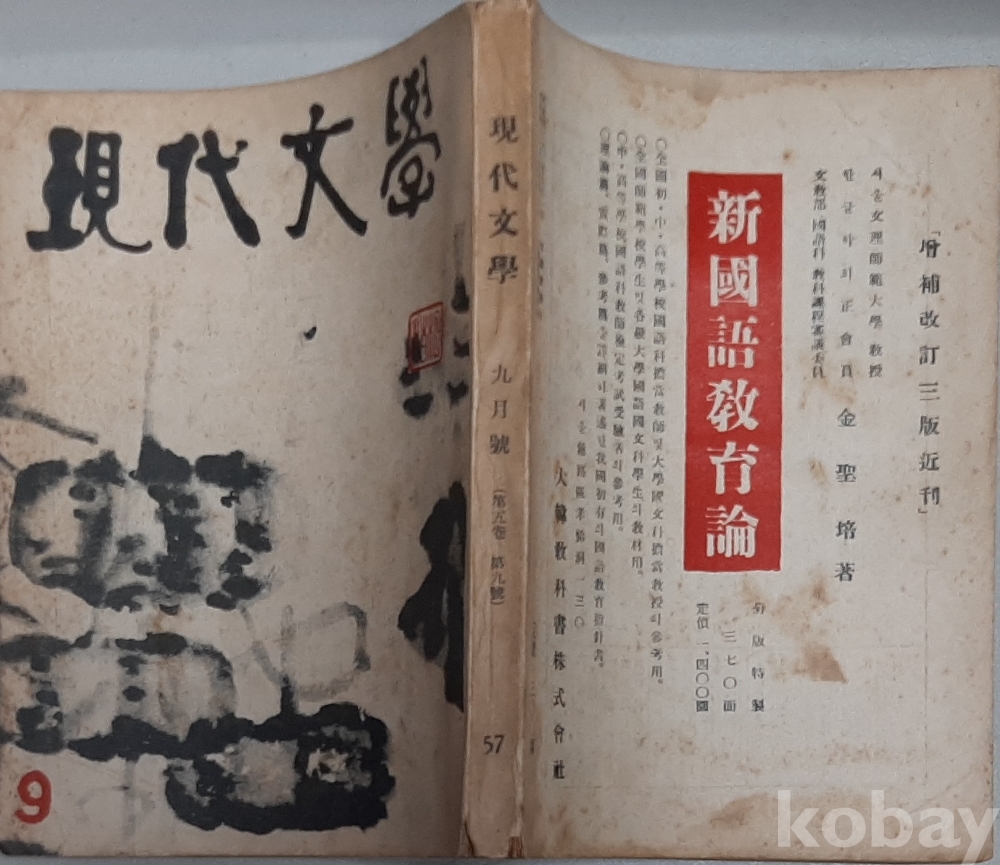 現代文學
9
現代文學 九月號 (第五卷 第九號)
57
「增補改訂三版近刊」
서울文理師範大學敎授
한글학회正會員 金聖培著
文敎部國語科敎科課程審議委員
新國語敎育論
菊版特製
三七〇面
定價 二、四〇〇圜
〇全國初·中·高等學校國語科擔當敎師및大學國文科擔當敎授의參考用。
〇全國師範學校學生및各級大學國語國文科學生의敎材用。
〇中·高等學校國語科敎師檢定考試受驗者의參考用。
〇理論篇、實際篇、參考篇을詳細히著述한我國初有의國語敎育指針書。
서울鍾路區孝悌洞一三〇
大韓敎科書株式會社
kobay